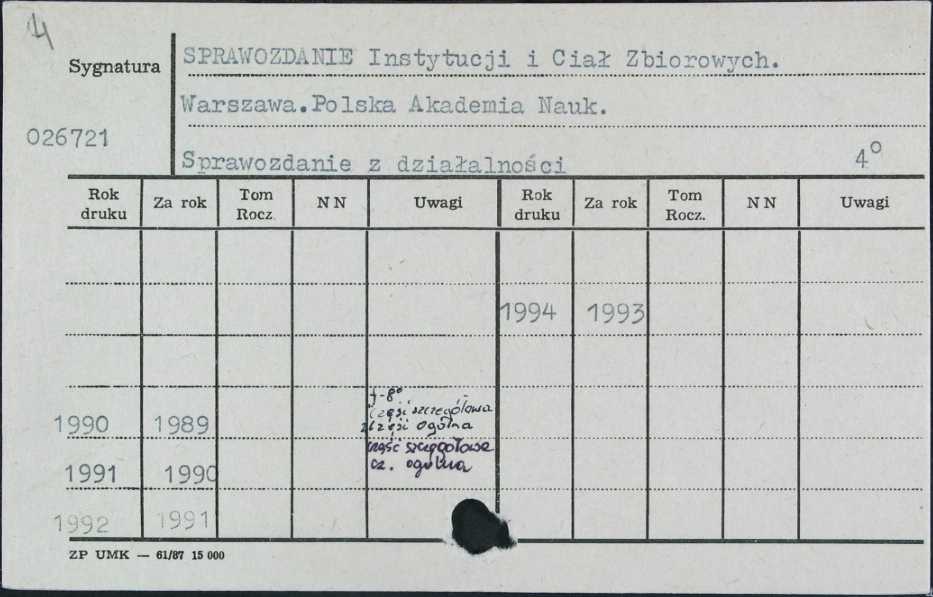 Sygnatura
SPRAWOZDANIE Instytucji i Ciał Zbiorowych.
Warszawa.Polska Akademia Nauk.
026721
Sprawozdanie z działalności 4°
Rok druku Za rok Tom Rocz. NN Uwagi Rok druku Za rok Tom Rocz. NN Uwagi
1994 1993
f-8°
część szczegółowa
1990 1989 części ogólna
część szczegółowa
1991 1990 cz. ogólna
1992 1991
ZP UMK — 61/87 15 000